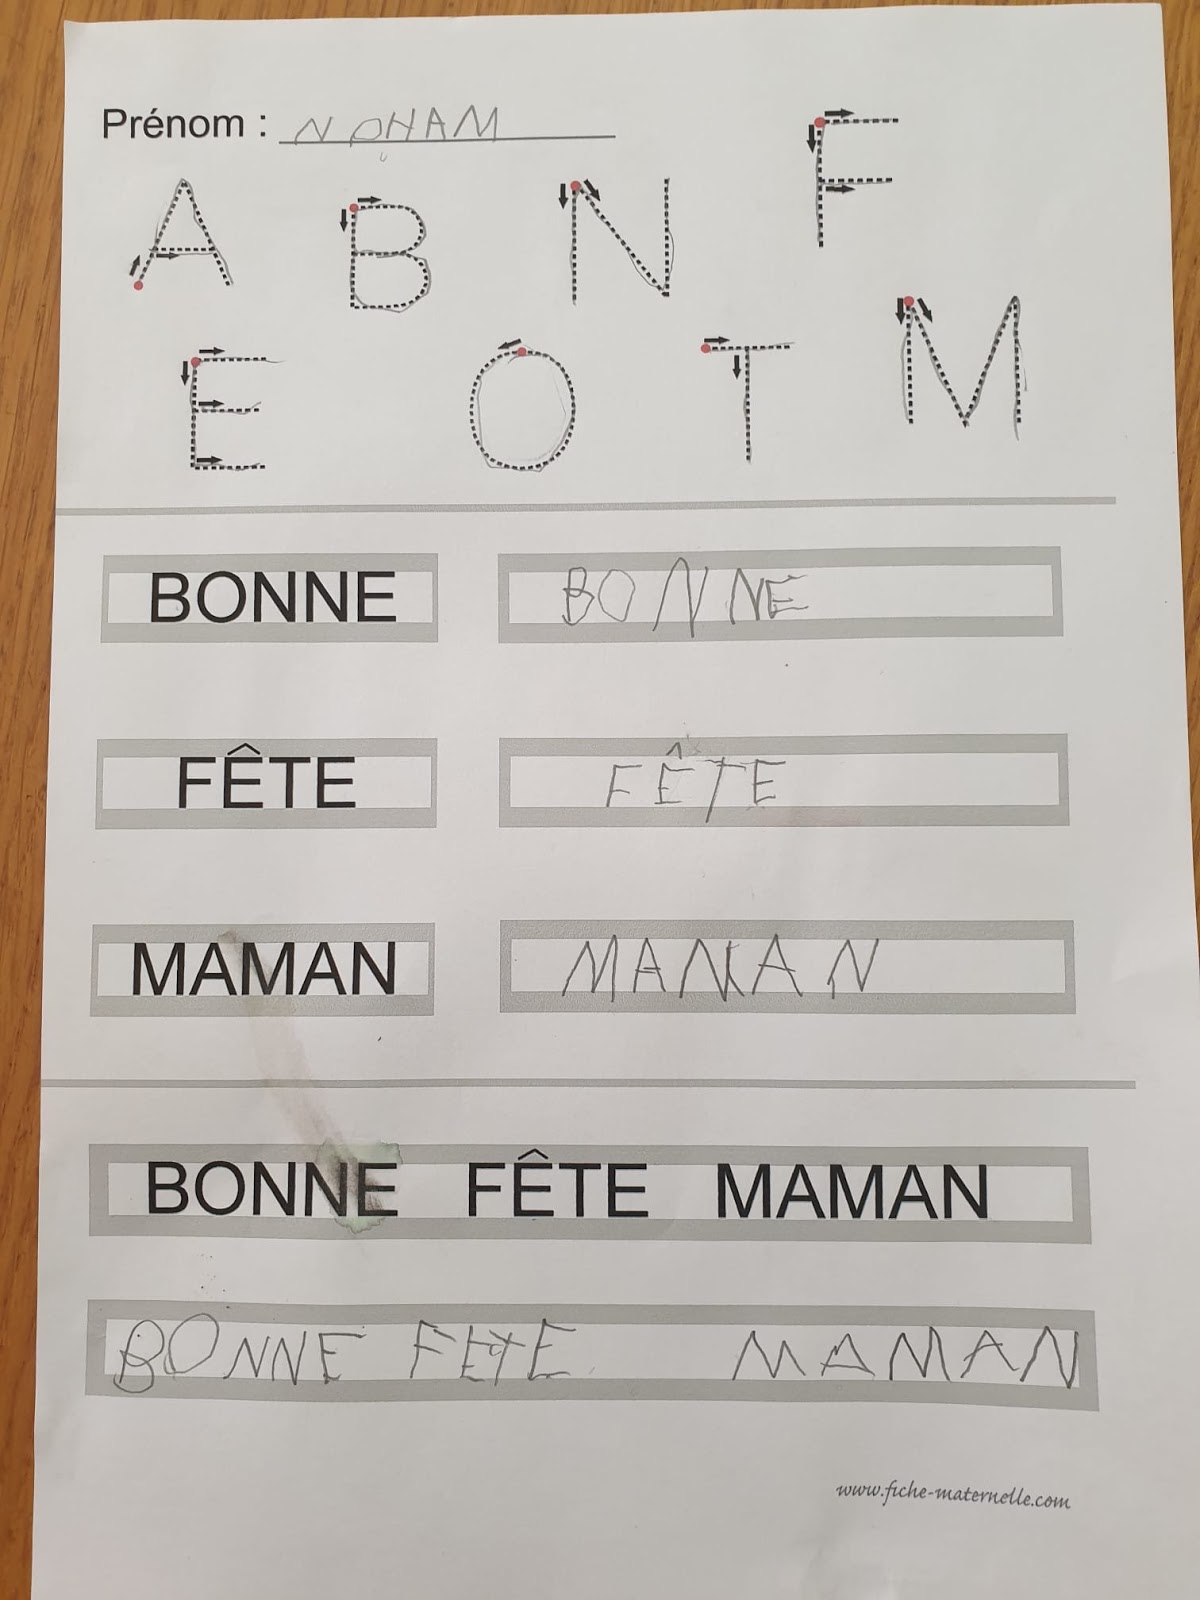 Prénom : NOHAM
A B N F
E O T M
BONNE BONNE
FÊTE FÊTE
MAMAN MAMAN
BONNE FÊTE MAMAN
BONNE FETE MAMAN
www.fiche-maternelle.com